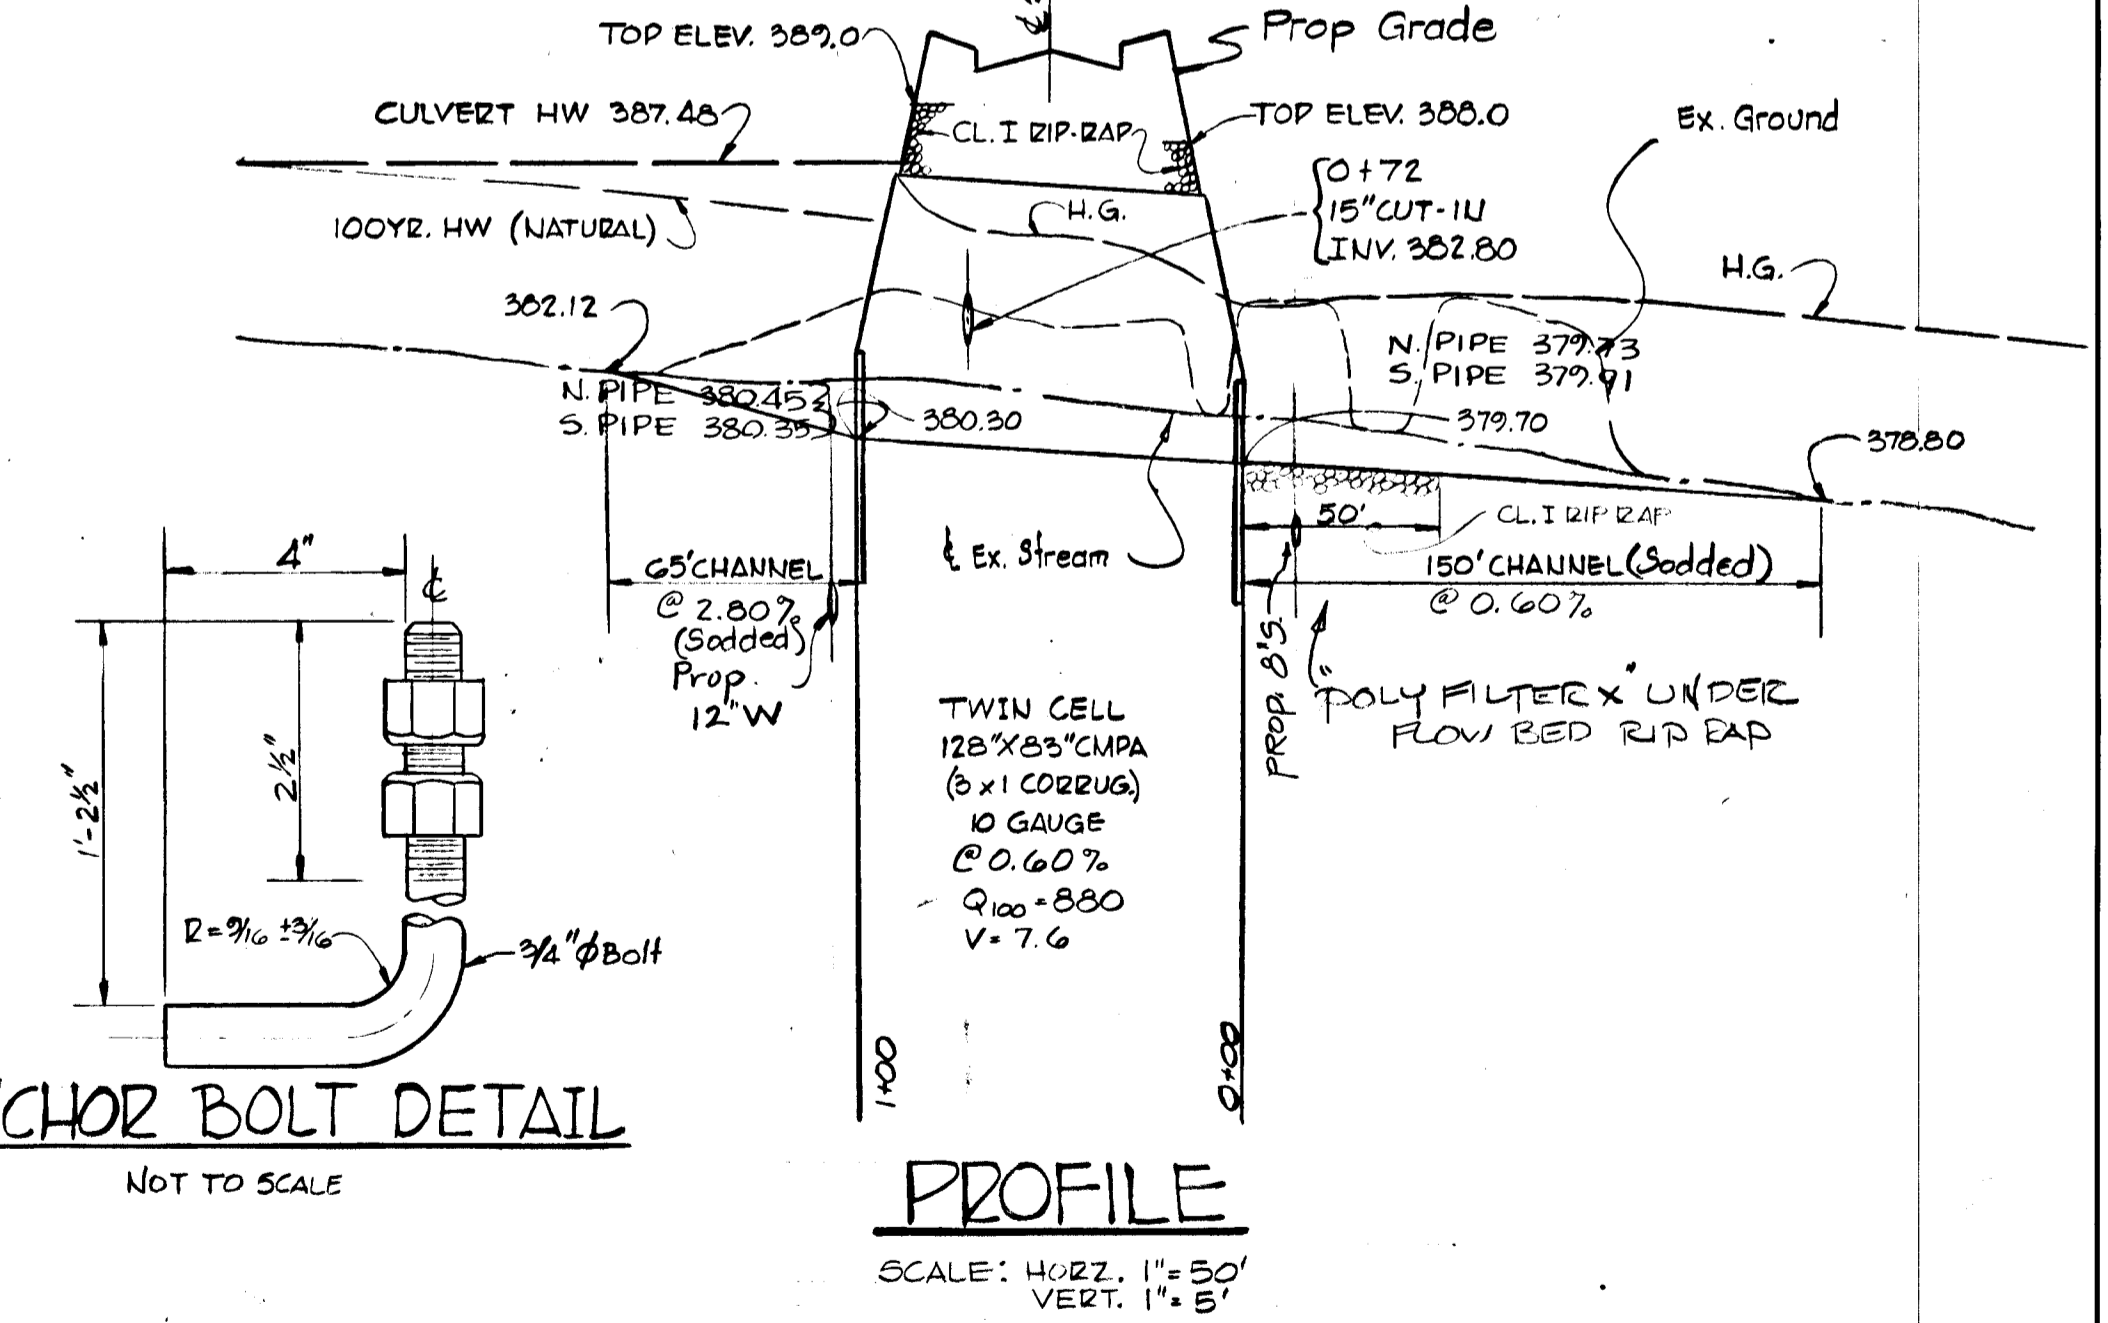 TOP ELEV. 389.0
Prop Grade
CULVERT HW 387.48
CL. I RIP-RAP
TOP ELEV. 388.0
Ex. Ground
0+72
15" CUT-IN
INV. 382.80
100YR. HW (NATURAL)
H.G.
H.G.
382.12
N. PIPE 380.45
S. PIPE 380.35
380.30
N. PIPE 379.73
S. PIPE 379.91
379.70
378.80
50'
CL. I RIP RAP
℄ Ex. Stream
65' CHANNEL
@ 2.80%
(Sodded)
Prop.
12" W
150' CHANNEL (Sodded)
@ 0.60%
PROP. 8" S.
"POLY FILTER X" UNDER
FLOW BED RIP RAP
TWIN CELL
128" X 83" CMPA
(3 x 1 CORRUG.)
10 GAUGE
@ 0.60%
Q100 = 880
V = 7.6
1+00
0+00
4"
℄
1'-2½"
2½"
R = 9/16 ± 3/16
3/4" φ Bolt
CHOR BOLT DETAIL
NOT TO SCALE
PROFILE
SCALE: HORZ. 1" = 50'
VERT. 1" = 5'